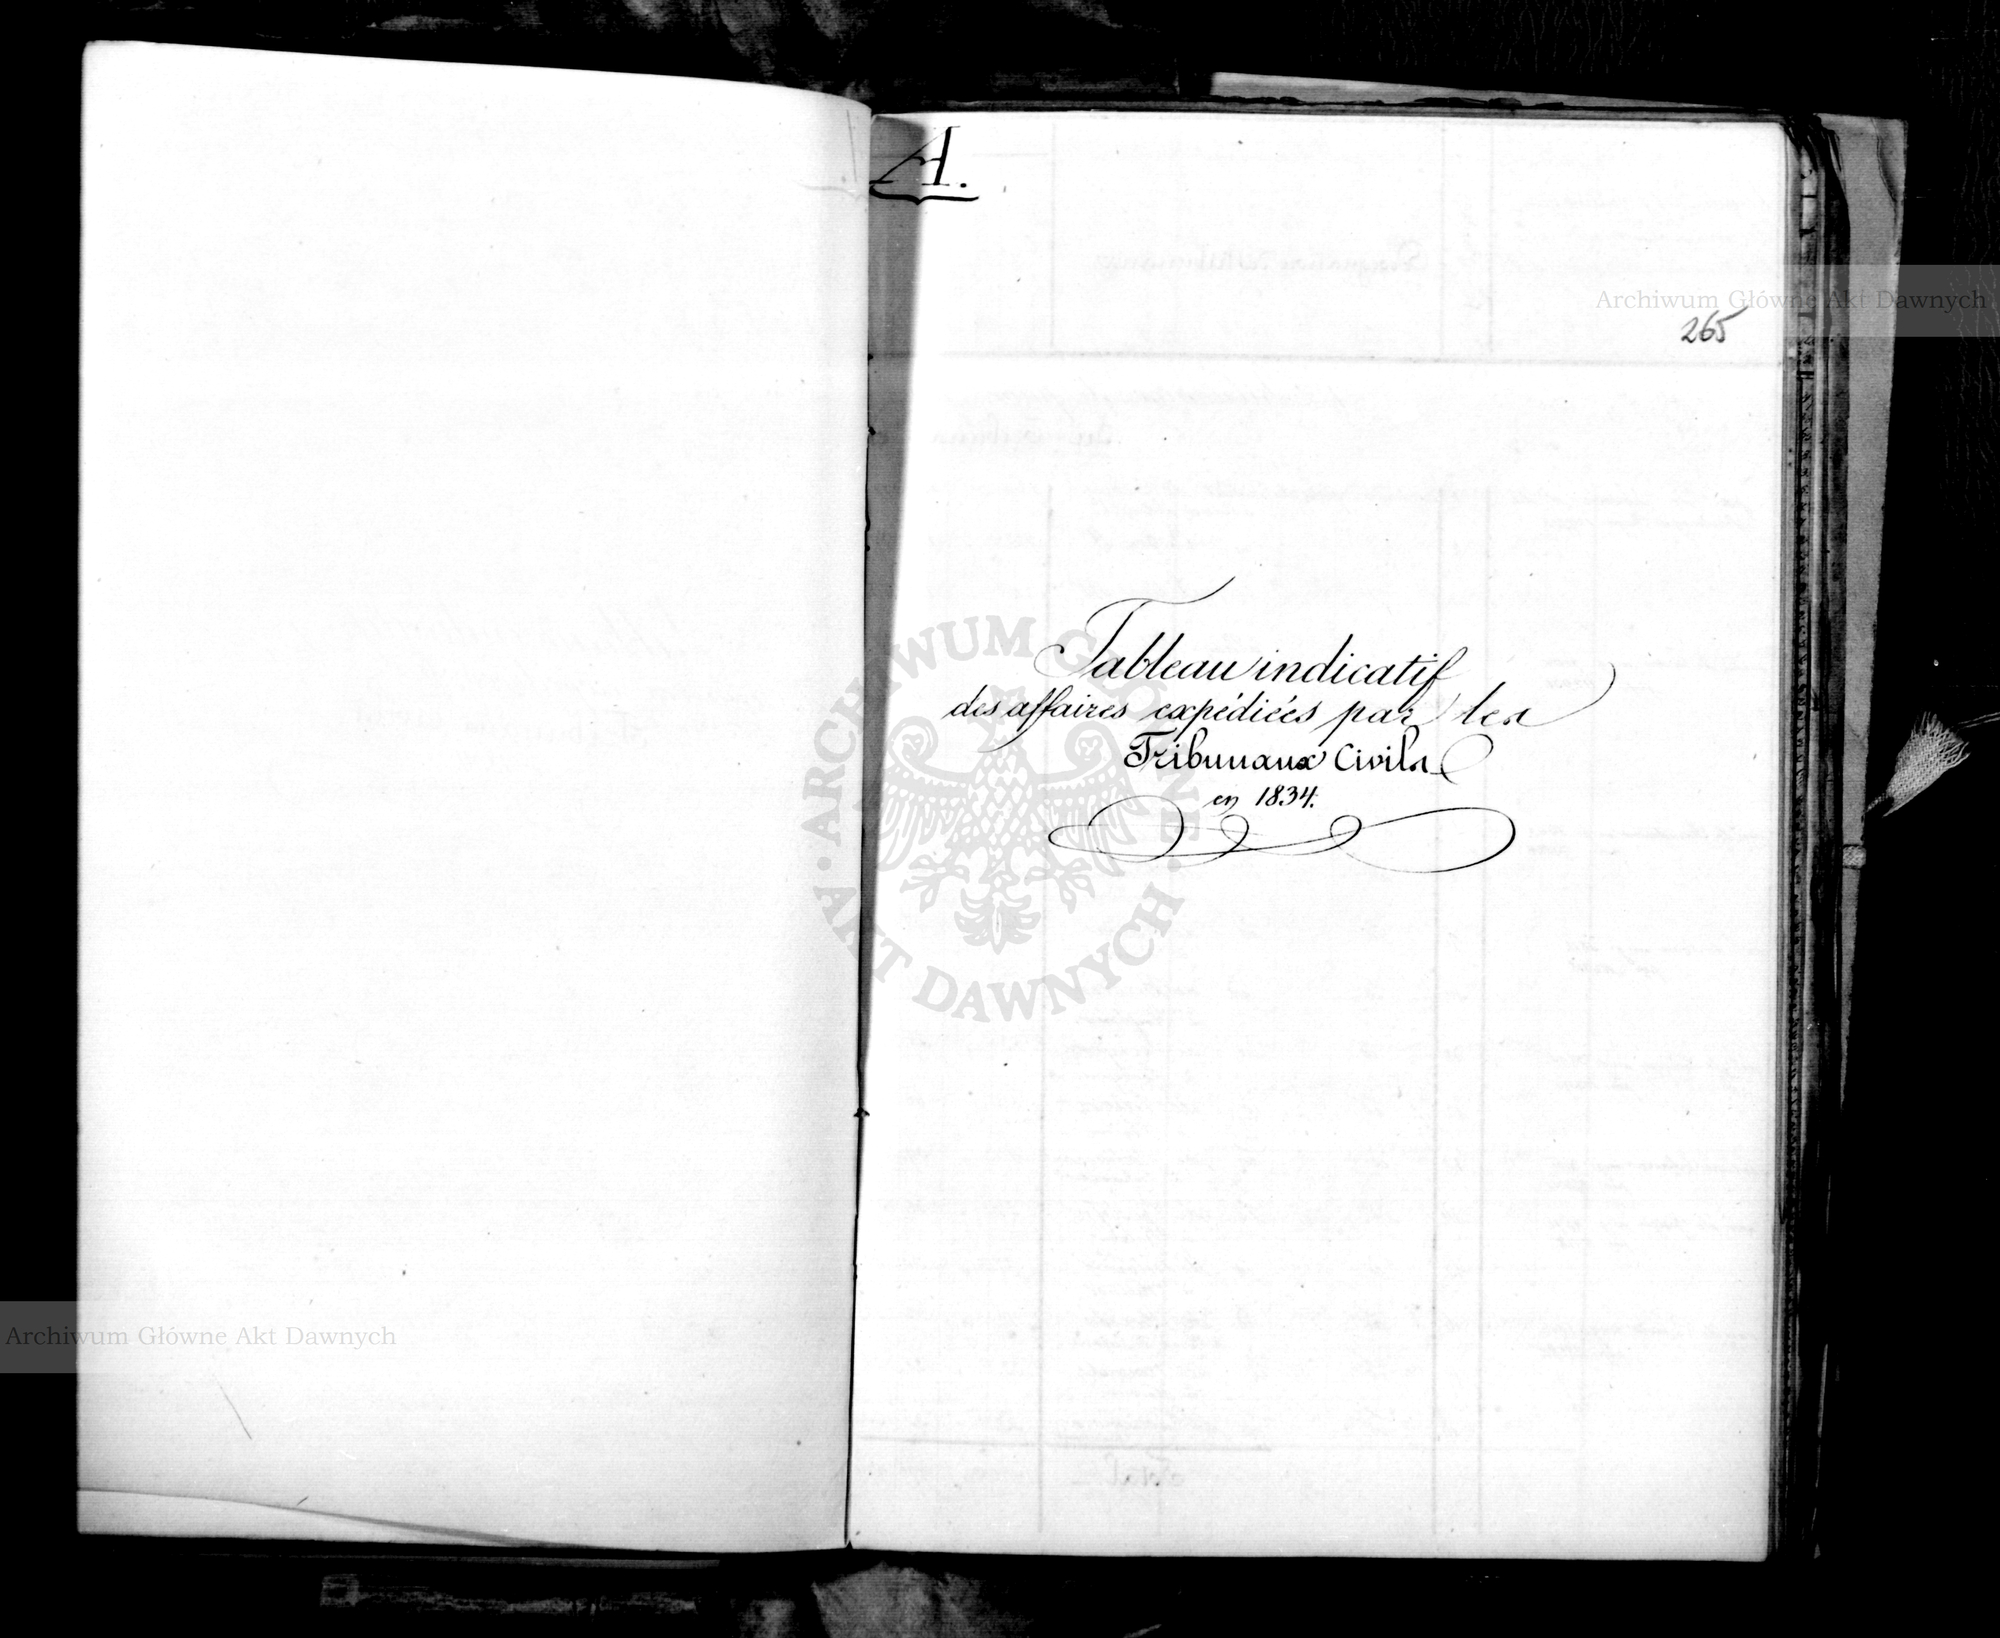 A.
Archiwum Główne Akt Dawnych
265
Tableau indicatif
des affaires expédiées par les
Tribunaux Civils
en 1834.
ARCHIWUM GŁÓWNE · AKT DAWNYCH ·
Archiwum Główne Akt Dawnych